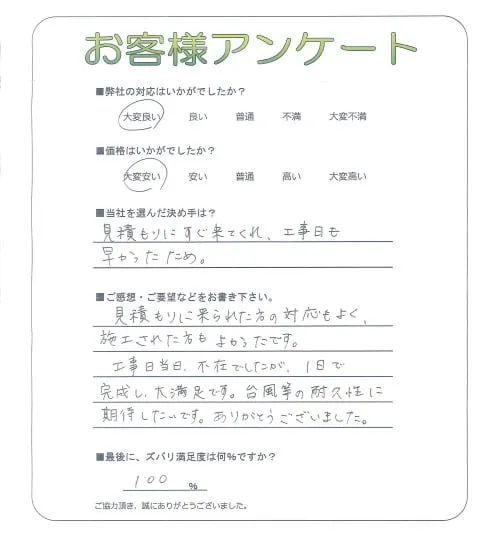 お客様アンケート
■弊社の対応はいかがでしたか?
大変良い 良い 普通 不満 大変不満
■価格はいかがでしたか?
大変安い 安い 普通 高い 大変高い
■当社を選んだ決め手は?
見積もりにすぐ来てくれ、工事日も
早かったため。
■ご感想・ご要望などをお書き下さい。
見積もりに来られた方の対応もよく、
施工された方もよかったです。
工事日当日、不在でしたが、1日で
完成し、大満足です。台風等の耐久性に
期待したいです。ありがとうございました。
■最後に、ズバリ満足度は何%ですか?
100 %
ご協力頂き、誠にありがとうございました。